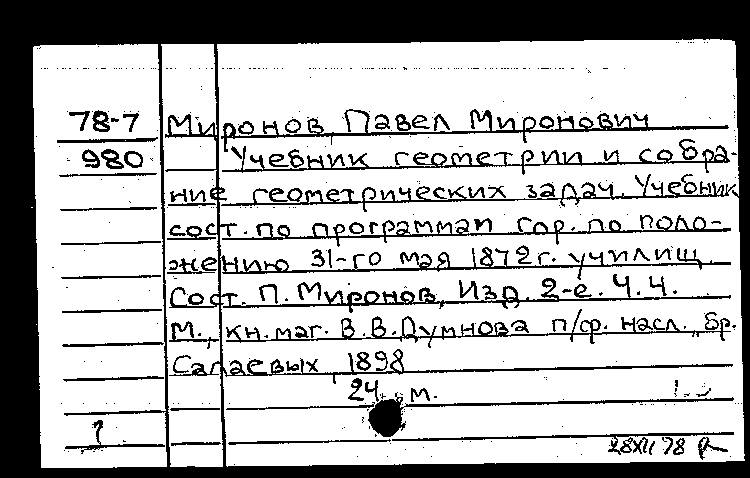 78-7 Миронов, Павел Миронович
980 Учебник геометрии и собра-
ние геометрических задач. Учебник
сост. по программам гор. по поло-
жению 31-го мая 1872 г. училищ.
Сост. П. Миронов, Изд. 2-е. Ч. 4.
М., кн. маг. В. В. Думнова п/ф. насл. бр.
Салаевых, 1898
24 м.
28 XII 78